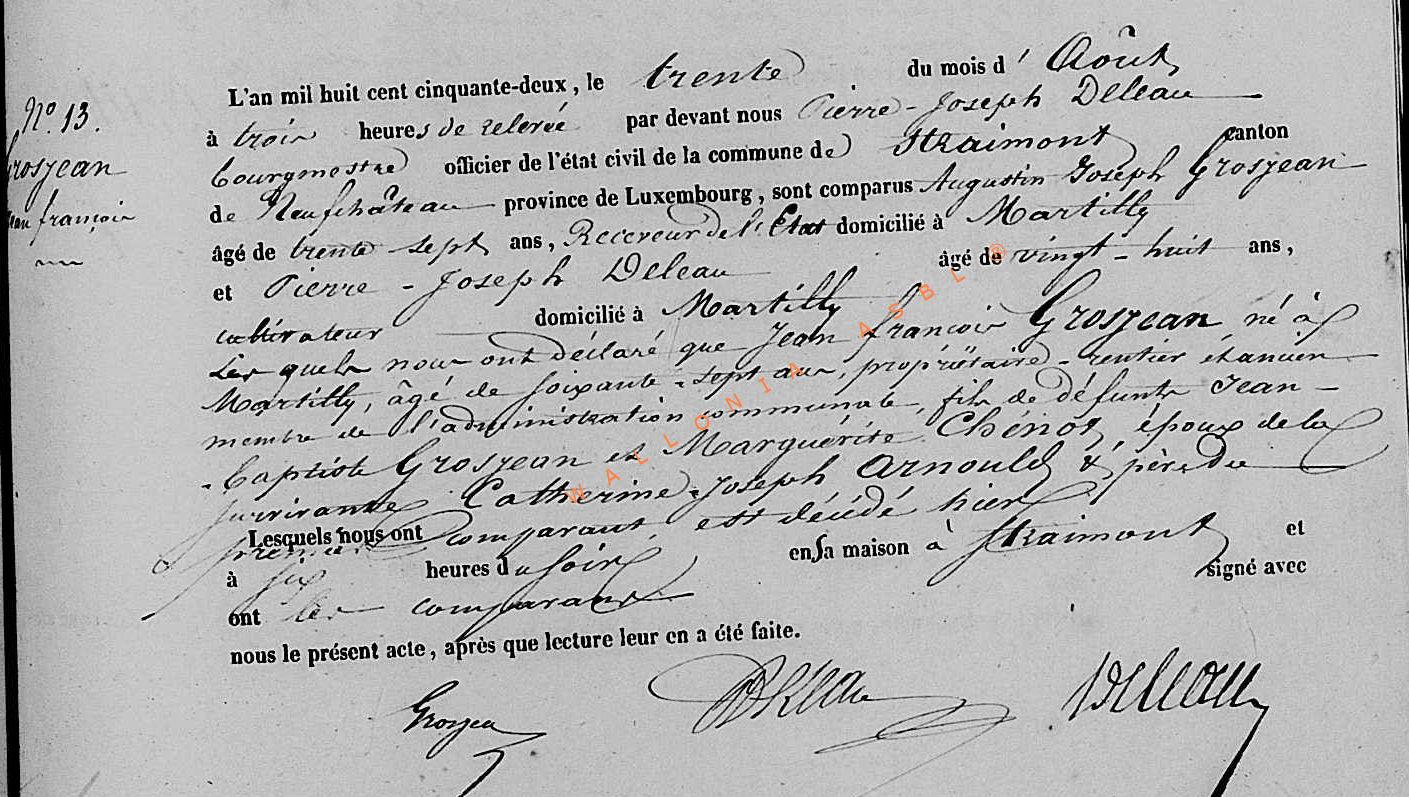 N.º 13.
Grosjean
Jean françois
L'an mil huit cent cinquante-deux, le trente du mois d' Août
à trois heures de relevée par devant nous Pierre-Joseph Deleau
bourgmestre officier de l'état civil de la commune de Straimont canton
de Neufchâteau province de Luxembourg, sont comparus Augustin Joseph Grosjean
âgé de trente sept ans, Receveur de l'Etat domicilié à Martilly
et Pierre-Joseph Deleau âgé de vingt-huit ans,
cultivateur domicilié à Martilly
Les quels nous ont déclaré que Jean françois Grosjean né à
Martilly, âgé de soixante-sept ans, propriétaire-rentier et ancien
membre de l'administration communale, fils de défunts Jean-
-Baptiste Grosjean et Marguérite Chénot, époux de la
survivante Catherine-Joseph Arnould & père du
premier comparant, est décédé hier
Lesquels nous ont
à six heures du soir en sa maison à Straimont et
ont les comparans signé avec
nous le présent acte, après que lecture leur en a été faite.
Grosjean Deleau Deleau
WALLONIA ASBL ®